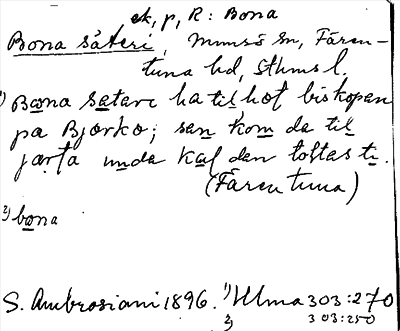 ek, p, R: Bona
Bona säteri, Munsö sn, Fären-
tuna hd, Sthms l.
1) Bona satare ha til hof biskopan
pa Bjorko; san kom da til
jarta unda Kal den tolftas ti.
(Färentuna)
2) bona
S. Ambrosiani 1896. 1) Ulma 303:270
2) 303:250